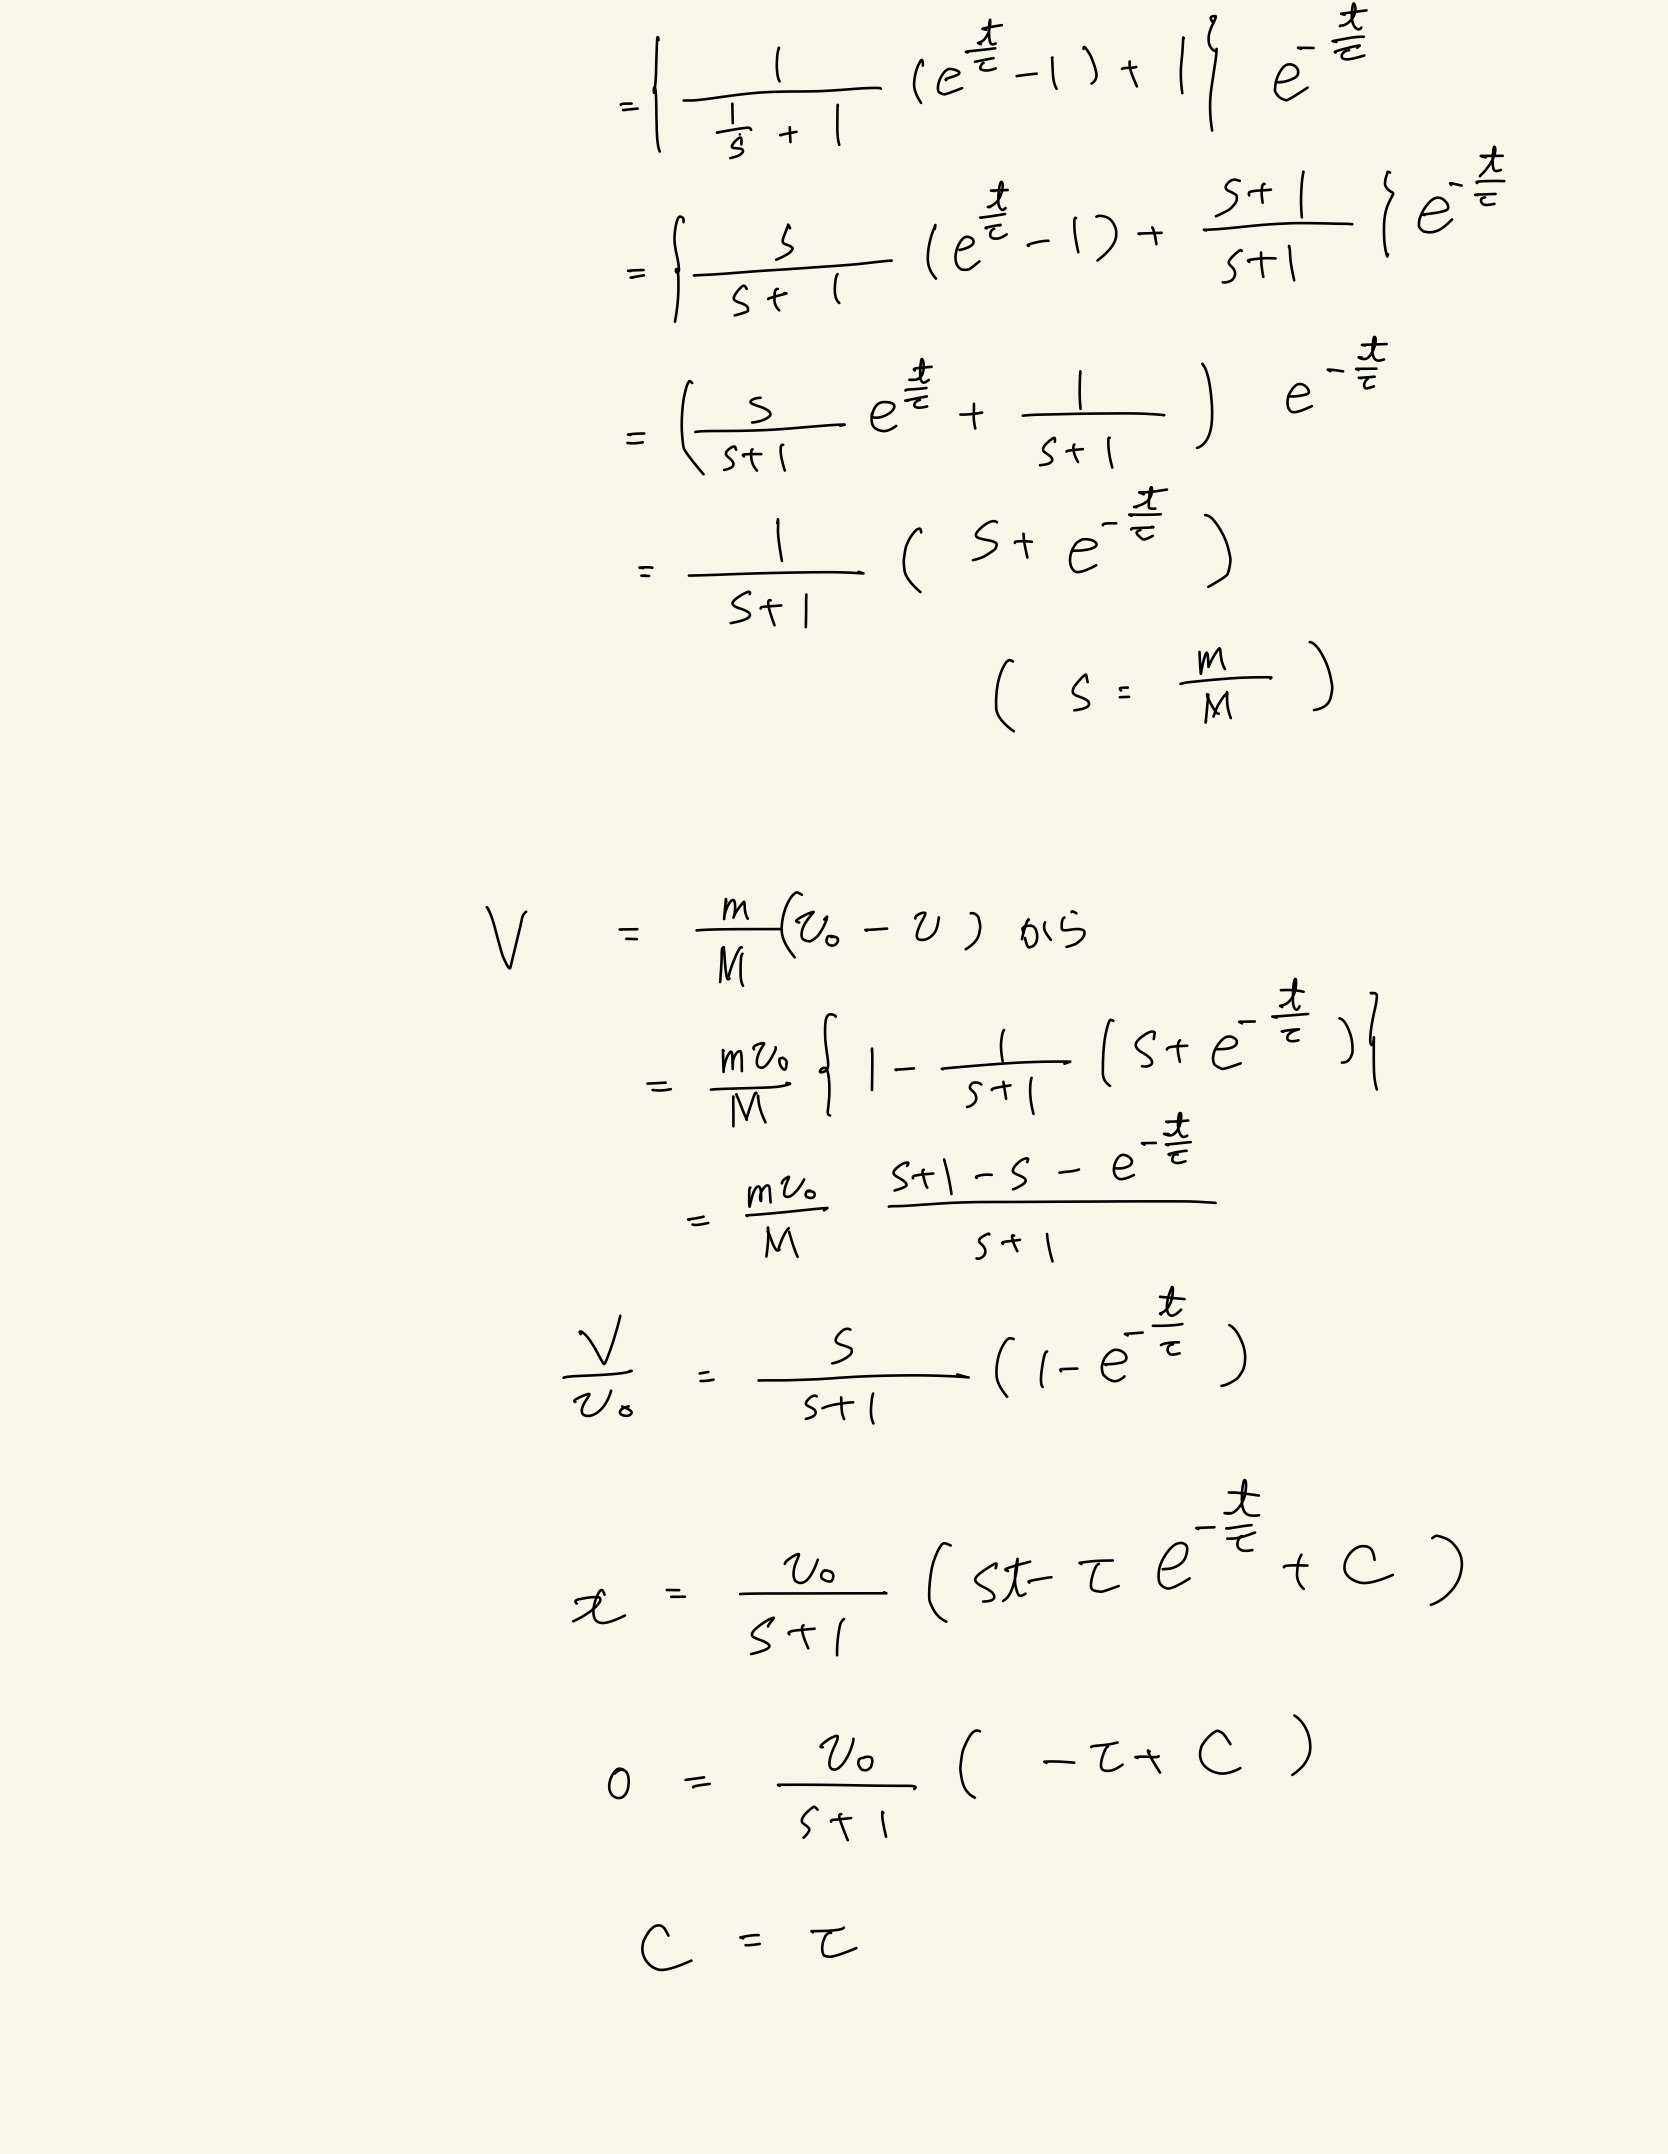 = { \frac{1}{\frac{1}{s} + 1} (e^{\frac{t}{τ}} - 1) + 1 } e^{-\frac{t}{τ}}
= { \frac{s}{s+1} (e^{\frac{t}{τ}} - 1) + \frac{s+1}{s+1} { e^{-\frac{t}{τ}}
= ( \frac{s}{s+1} e^{\frac{t}{τ}} + \frac{1}{s+1} ) e^{-\frac{t}{τ}}
= \frac{1}{s+1} ( s + e^{-\frac{t}{τ}} )
( s = \frac{m}{M} )
V = \frac{m}{M} (v_0 - v) から
= \frac{mv_0}{M} { 1 - \frac{1}{s+1} ( s + e^{-\frac{t}{τ}} ) }
= \frac{mv_0}{M} \frac{s+1 - s - e^{-\frac{t}{τ}}}{s+1}
\frac{V}{v_0} = \frac{s}{s+1} ( 1 - e^{-\frac{t}{τ}} )
x = \frac{v_0}{s+1} ( st - τ e^{-\frac{t}{τ}} + C )
0 = \frac{v_0}{s+1} ( - τ + C )
C = τ